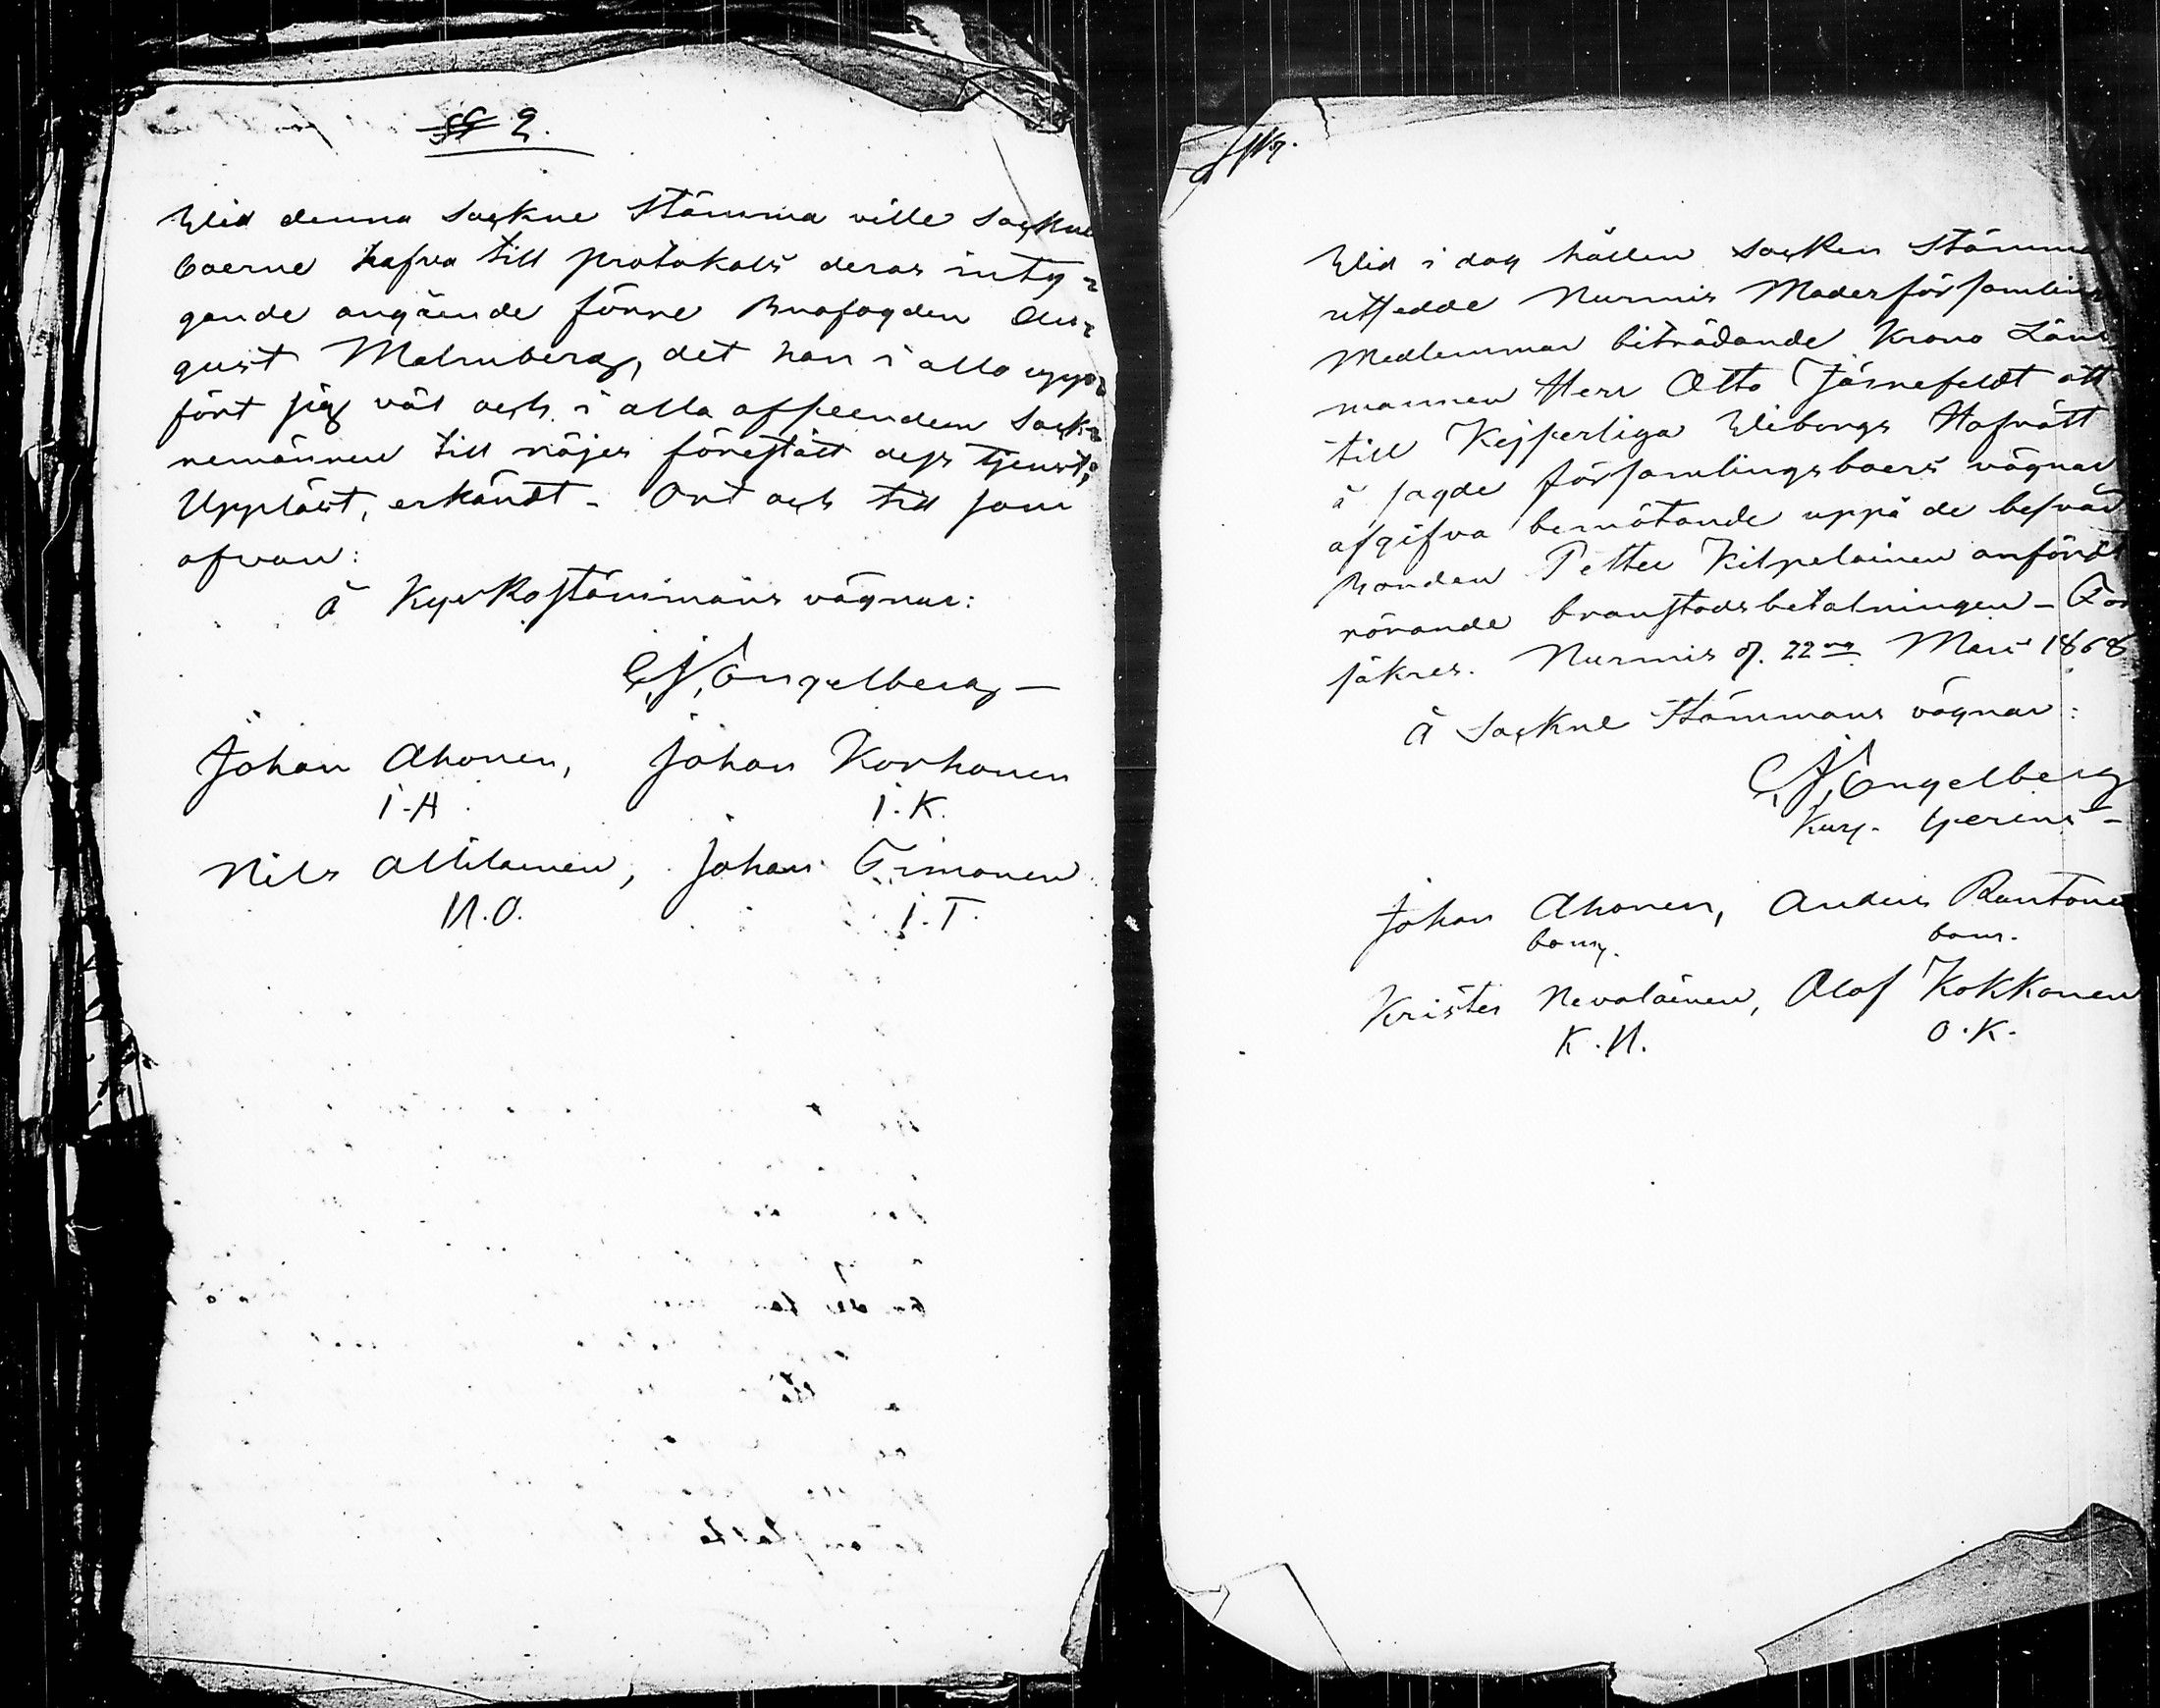 §§ 2.
Wid denna Sockne Stämma ville Sockne
boerne hafva till protokolls deras inty-
gande angående förre Bruksfogden Au-
gust Malmberg, det han i allo upp-
fört sig väl och i alla afseenden Sock-
nemännen till nöjes förestått dess tjenst;
Uppläst, erkändt - Ort och tid som
ofvan:
Å Kyrkostämmans vägnar:
C. J. Engelberg -
Johan Ahonen, Johan Korhonen
I. A. I. K.
Nils Ollilainen, Johan Timonen
N. O. I. T.
Wid i dag hållen Socken Stämma
utsedde Nurmis Moderförsamlings
Medlemmar biträdande Krono Läns
mannen Herr Otto Järnefeldt att
till Kejserliga Wiborgs Hofrätt
å sagde församlingsboers vägnar
afgifva bemötande uppå de besvär
Bonden Petter Kilpelainen anfördt
rörande branstodsbetalningen - För
säkres. Nurmis d. 22 Mars 1868
Å Sockne Stämmans vägnar:
C. J. Engelberg
Johan Ahonen, Anders Rantonen
bom. bom.
Krister Nevalainen, Olof Kokkonen
K. N. O. K.